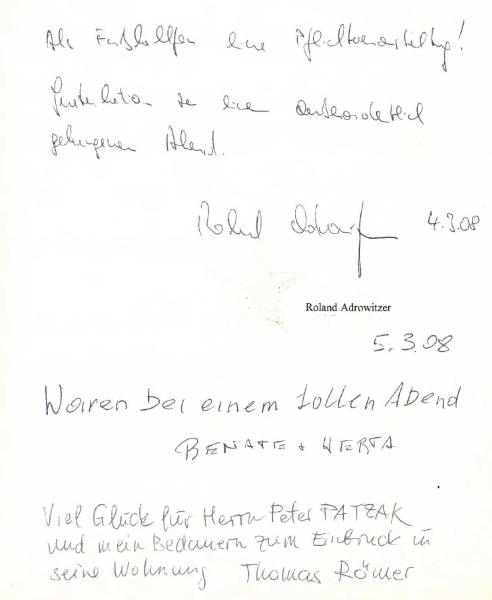 Als Fußballfan eine Pflichtveranstaltung!
Gratulation zu einem außerordentlich
gelungenen Abend.
4.3.08
Roland Adrowitzer
5.3.08
Waren bei einem tollen Abend
RENATE + HERTA
Viel Glück für Herrn Peter PATZAK
und mein Bedauern zum Einbruck in
seine Wohnung Thomas Römer